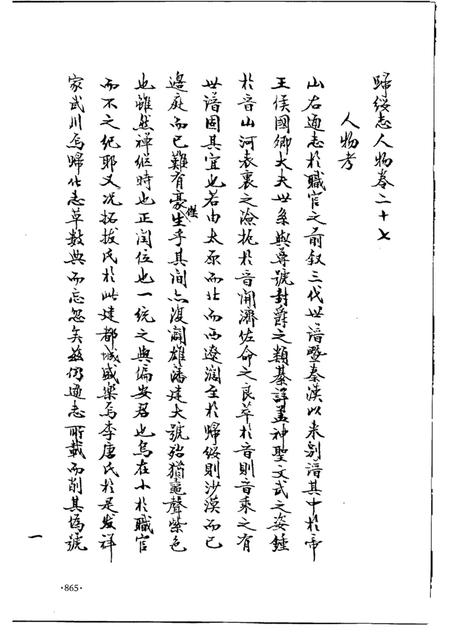 歸綏志人物卷二十七
人物考
山右通志於職官之前叙三代世譜暨秦漢以來别譜其中於帝
王侯國卿大夫世系與尊號封爵之類綦詳盖神聖文武之姿鍾
於晉山河表裏之險扼於晉開濟佐命之良萃於晉則晉乘之有
世譜固其宜也若由太原而北而西遼濶至於歸綏則沙漠而已
邊庭而已難有豪雄生乎其间亦復闢雄藩建大號殆猶黿聲紫色
也雖然禅继時也正闰位也一統之與偏安君也烏在小於職官
而不之纪耶又况拓拔氏於此建都城盛樂焉李唐氏於是发祥
家武川焉歸化志草數典而忘忽矣兹仍通志所載而削其僞號
一
·865·